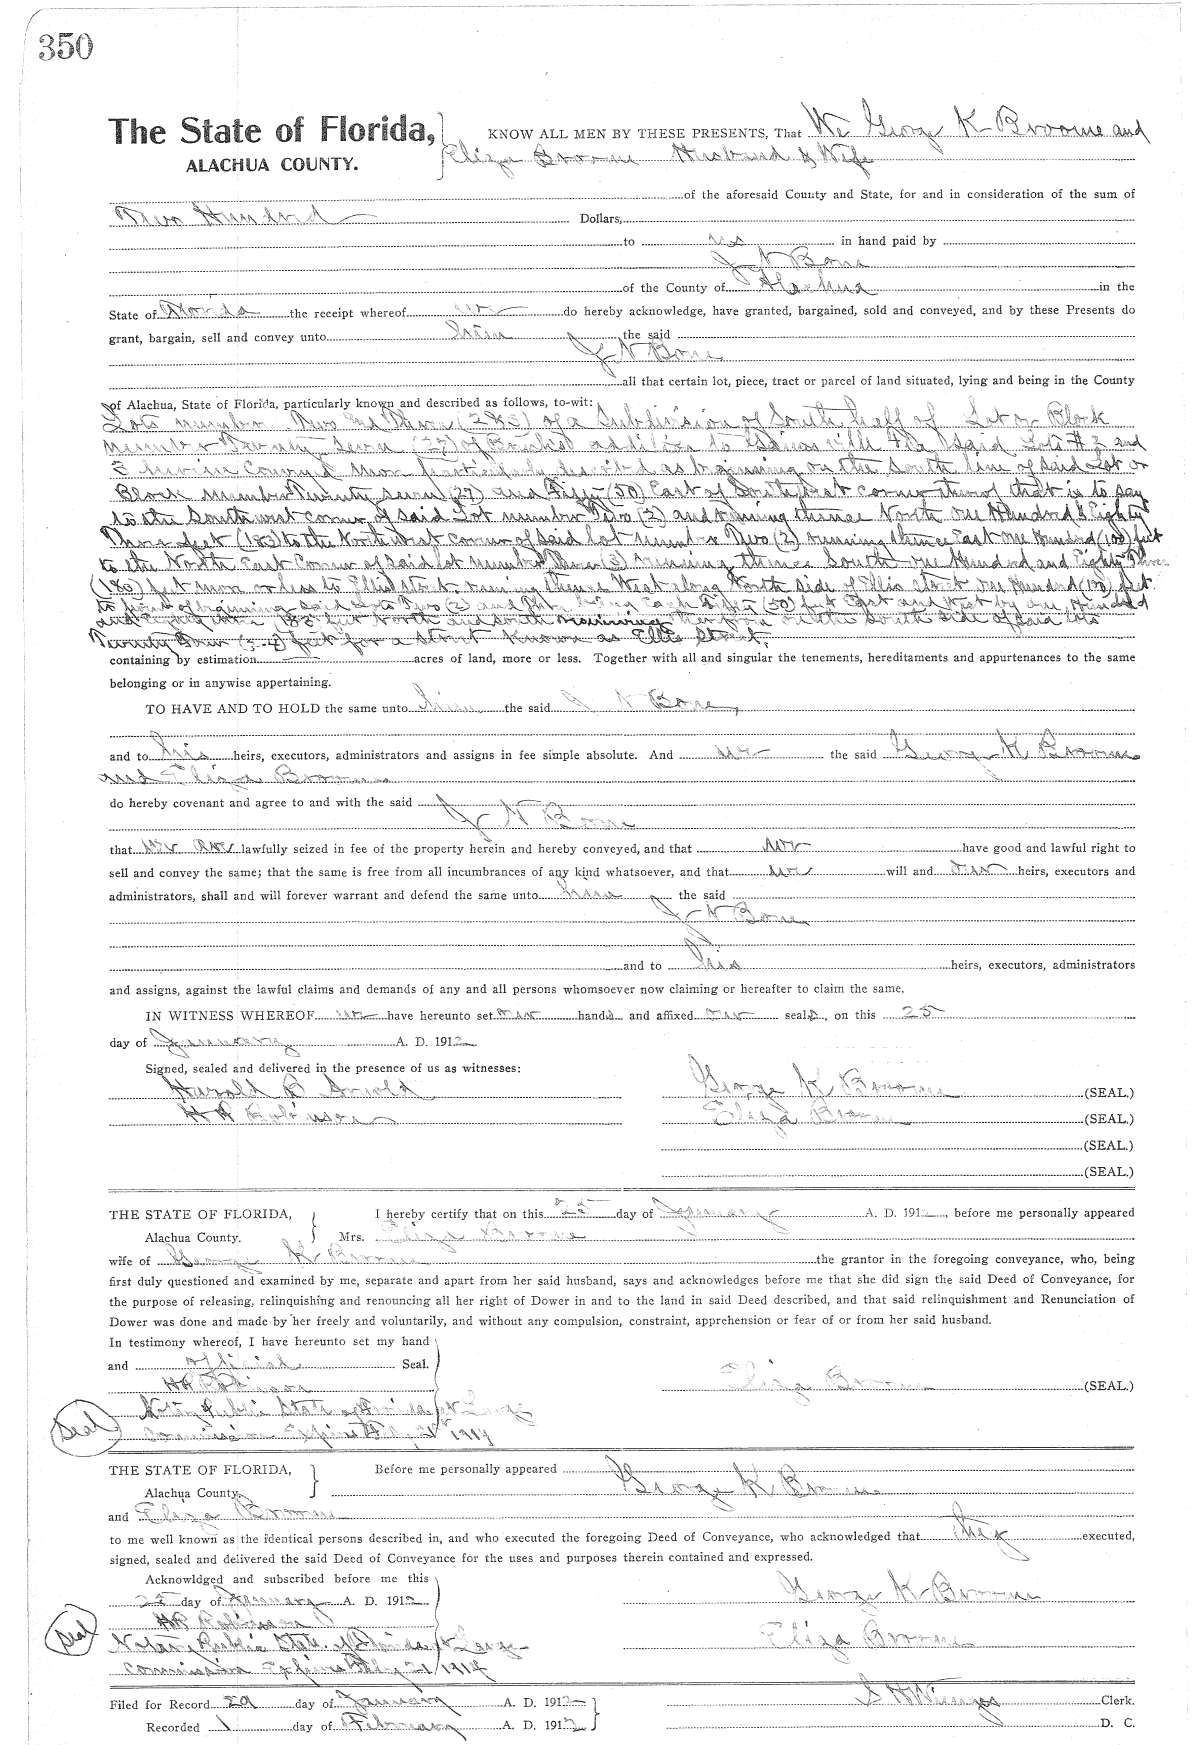 350
The State of Florida, KNOW ALL MEN BY THESE PRESENTS, That We George K Broome and
ALACHUA COUNTY. Eliza Broome Husband & Wife
of the aforesaid County and State, for and in consideration of the sum of
Two Hundred Dollars,
to us in hand paid by
J N Bone
of the County of Alachua in the
State of Florida the receipt whereof we do hereby acknowledge, have granted, bargained, sold and conveyed, and by these Presents do
grant, bargain, sell and convey unto him the said
J N Bone
all that certain lot, piece, tract or parcel of land situated, lying and being in the County
of Alachua, State of Florida, particularly known and described as follows, to-wit:
Lots number Two and Three (2&3) of a Subdivision of South half of Lot or Block
number Twenty seven (27) of addition to Gainesville Fla said Lots # 2 and
3 herein more particularly described as beginning on the south line of said Lot or
Block number Twenty seven (27) and Fifty (50) East of South west corner thereof that is to say
to the South west corner of said Lot number Two (2) and running thence North one Hundred & Eighty
Three feet (183) to the North west corner of said lot number Two (2) running thence East one Hundred (100) feet
to the North East Corner of said lot number Three (3) running thence South one Hundred and Eighty Three
(183) feet more or less to Ellis street running thence West along North side of Ellis street one Hundred (100) feet
to point of beginning said Lots Two (2) and Three being Each Fifty (50) feet East and West by one Hundred
and 183 feet North and South therefrom on the South side of said lots
Twenty Four feet for a street Known as Ellis Street.
containing by estimation acres of land, more or less. Together with all and singular the tenements, hereditaments and appurtenances to the same
belonging or in anywise appertaining.
TO HAVE AND TO HOLD the same unto him the said J N Bone,
and to his heirs, executors, administrators and assigns in fee simple absolute. And we the said George K Broome
and Eliza Broome
do hereby covenant and agree to and with the said
J N Bone
that we are lawfully seized in fee of the property herein and hereby conveyed, and that we have good and lawful right to
sell and convey the same; that the same is free from all incumbrances of any kind whatsoever, and that we will and our heirs, executors and
administrators, shall and will forever warrant and defend the same unto him the said
J N Bone
and to his heirs, executors, administrators
and assigns, against the lawful claims and demands of any and all persons whomsoever now claiming or hereafter to claim the same.
IN WITNESS WHEREOF we have hereunto set our hands and affixed our seals, on this 25
day of January A. D. 1912
Signed, sealed and delivered in the presence of us as witnesses:
Harold B Arnold George K Broome (SEAL.)
H R Robinson Eliza Broome (SEAL.)
(SEAL.)
(SEAL.)
THE STATE OF FLORIDA, I hereby certify that on this 25 day of January A. D. 1912, before me personally appeared
Alachua County. Mrs. Eliza Broome
wife of George K Broome the grantor in the foregoing conveyance, who, being
first duly questioned and examined by me, separate and apart from her said husband, says and acknowledges before me that she did sign the said Deed of Conveyance, for
the purpose of releasing, relinquishing and renouncing all her right of Dower in and to the land in said Deed described, and that said relinquishment and Renunciation of
Dower was done and made by her freely and voluntarily, and without any compulsion, constraint, apprehension or fear of or from her said husband.
In testimony whereof, I have hereunto set my hand
and official Seal.
H R Robinson Eliza Broome (SEAL.)
Seal Notary Public State of Florida at Large
Commission Expires Feby 21 1914
THE STATE OF FLORIDA, Before me personally appeared
Alachua County. George K Broome
and Eliza Broome
to me well known as the identical persons described in, and who executed the foregoing Deed of Conveyance, who acknowledged that they executed,
signed, sealed and delivered the said Deed of Conveyance for the uses and purposes therein contained and expressed.
Acknowldged and subscribed before me this
25 day of January A. D. 1912 George K Broome
H R Robinson
Seal Notary Public State of Florida at Large Eliza Broome
Commission Expires Feby 21/1914
Filed for Record 29 day of January A. D. 1912 S H Wienges Clerk.
Recorded 1 day of February A. D. 1912 D. C.